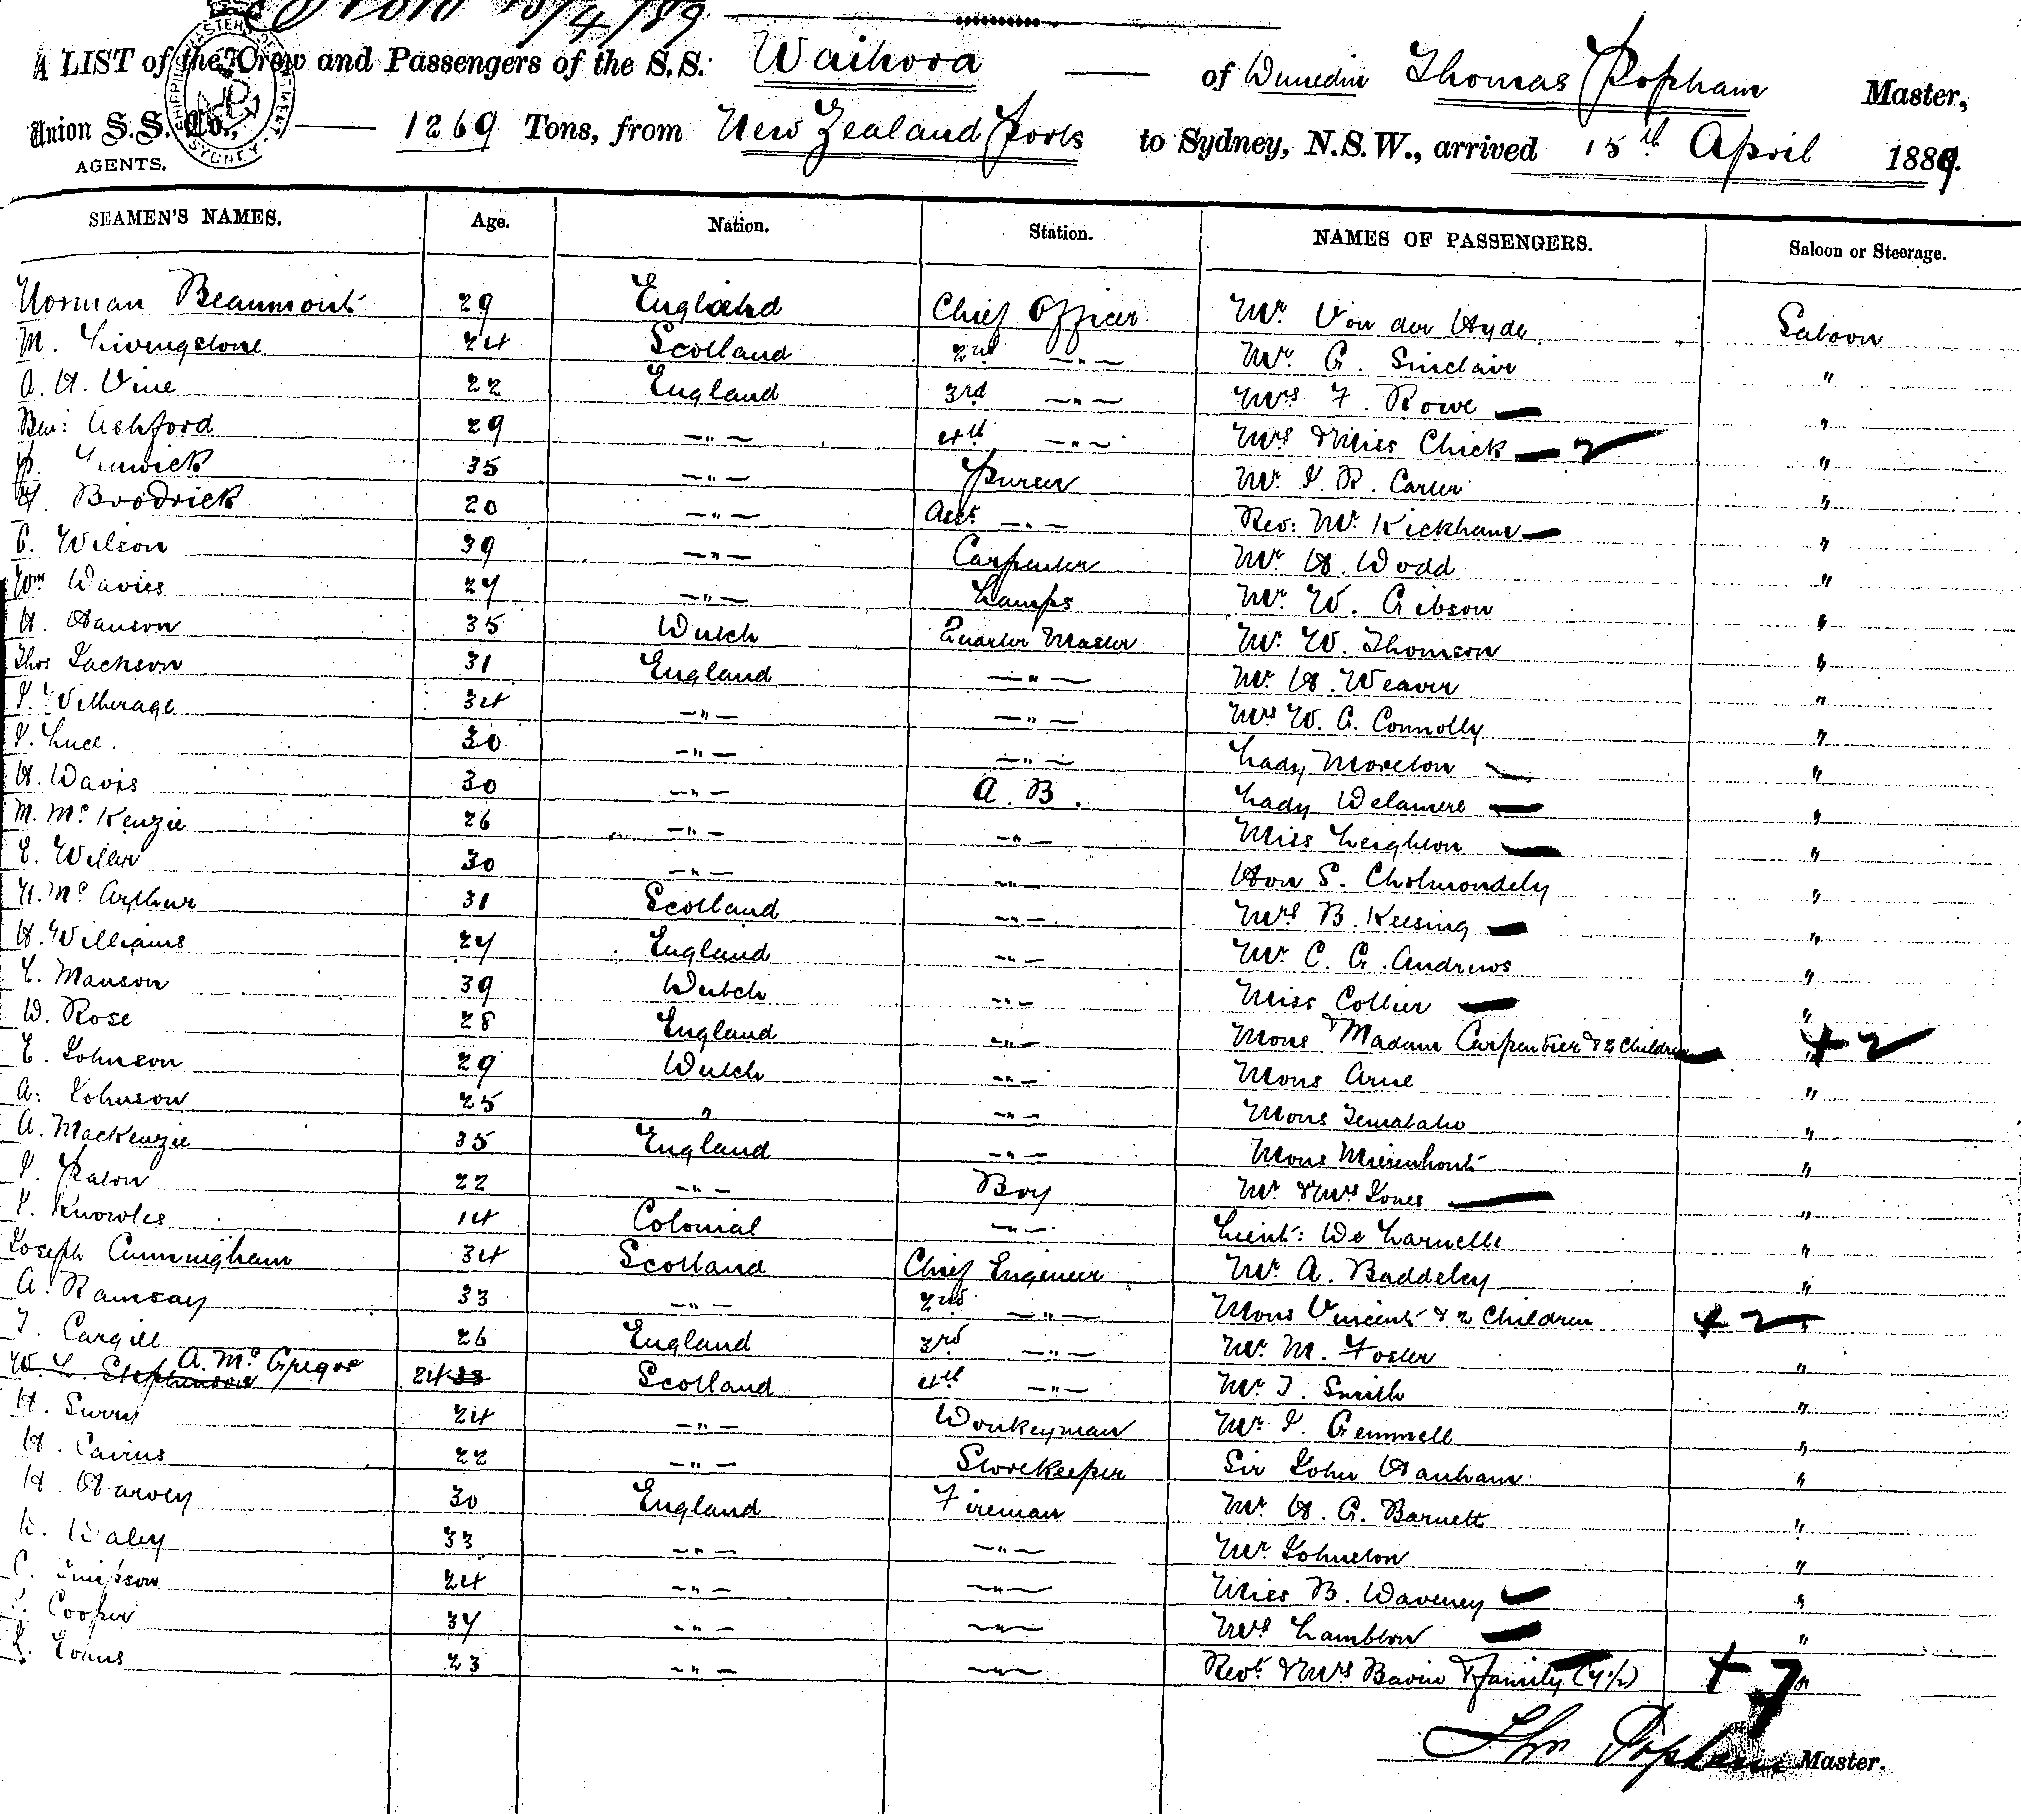 15/4/89
A LIST of the Crew and Passengers of the S.S. Waihora — of Dunedin Thomas Popham Master,
Union S.S. Co., — 1269 Tons, from New Zealand Ports to Sydney, N.S.W., arrived 15th April 1889.
AGENTS.
SEAMEN'S NAMES. Age. Nation. Station. NAMES OF PASSENGERS. Saloon or Steerage.
Norman Beaumont 29 England Chief Officer Mr Von der Hyde Saloon
M. Livingstone 24 Scotland 2nd —"— Mr G. Sinclair "
A. H. Vine 22 England 3rd —"— Mrs F. Rowe — "
Ben: Ashford 29 —"— 4th —"— Mrs & Miss Chick — 2 "
Lewick 35 —"— Purser Mr J. R. Carter "
H. Brodrick 20 —"— Asst —"— Rev: Mr Kickham — "
C. Wilson 39 —"— Carpenter Mr H. Dodd "
Wm Davies 27 —"— Lamps Mr W. Gibson "
H. Hanson 35 Dutch Quarter Master Mr W. Thomson "
Thos Jackson 31 England —"— Mr H. Weaver "
J. Witherage 34 —"— —"— Mrs W. G. Connolly "
J. Luce. 30 —"— —"— Lady Moreton — "
H. Davis 30 —"— A. B. Lady Delamere — "
M. McKenzie 26 —"— —"— Miss Leighton — "
30 —"— —"— Hon S. Cholmondely "
N. McArthur 31 Scotland —"— Mrs B. Keesing — "
H. Williams 27 England —"— Mr C. G. Andrews "
E. Manson 39 Dutch —"— Miss Collier — "
W. Rose 28 England —"— Mons & Madam Carpentier & 2 Children — " + 2
E. Johnson 29 Dutch —"— Mons Arne "
A. Johnson 25 " —"— Mons "
A. MacKenzie 35 England —"— Mons "
J. Paton 22 —"— Boy Mr & Mrs Jones — "
J. Knowles 14 Colonial —"— Lieut: De Larnelle "
Joseph Cunningham 34 Scotland Chief Engineer Mr A. Baddeley "
A. Ramsay 33 —"— 2nd —"— Mons Vincent & 2 Children + 2 "
T. Cargill 26 England 3rd —"— Mr M. Foster "
W. L. Stephenson A. McGregor 24 33 Scotland 4th —"— Mr T. Smith "
H. Surry 24 —"— Donkeyman Mr J. Gemmell "
H. Cairns 22 —"— Storekeeper Sir John Hanham "
H. Harvey 30 England Fireman Mr H. G. Barnett "
Daley 33 —"— —"— Mr Johnston "
Simpson 24 —"— —"— Miss B. Daveney — "
Cooper 37 —"— —"— Mrs Lambton — "
23 —"— —"— Revd & Mrs Bavin & family (7½) + 7 "
Thos Popham Master.